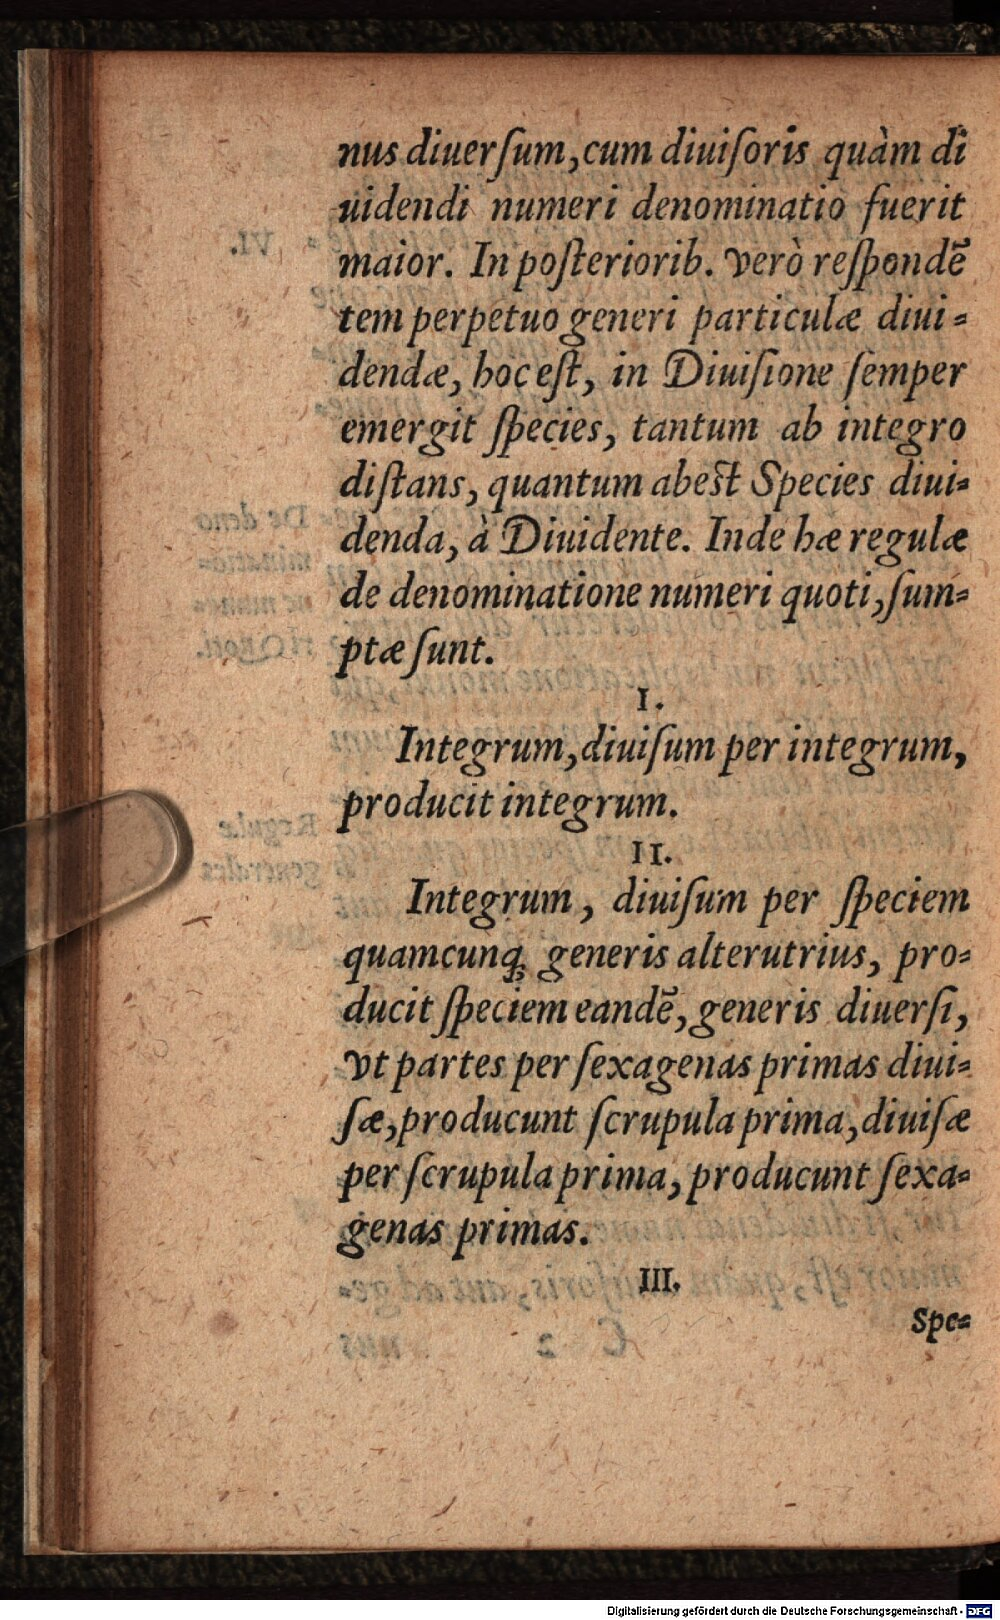 nus diuerſum, cum diuiſoris quàm di
uidendi numeri denominatio fuerit
maior. In poſteriorib. verò reſpondẽ
tem perpetuo generi particulæ diui-
dendæ, hoc eſt, in Diuiſione ſemper
emergit ſpecies, tantum ab integro
diſtans, quantum abeſt Species diui-
denda, à Diuidente. Inde hæ regulæ
de denominatione numeri quoti, ſum-
ptæ ſunt.
I.
Integrum, diuiſum per integrum,
producit integrum.
II.
Integrum, diuiſum per ſpeciem
quamcunq; generis alterutrius, pro-
ducit ſpeciem eandẽ, generis diuerſi,
vt partes per ſexagenas primas diui-
ſæ, producunt ſcrupula prima, diuiſæ
per ſcrupula prima, producunt ſexa-
genas primas.
III.
Spe-
Digitalisierung gefördert durch die Deutsche Forschungsgemeinschaft - DFG